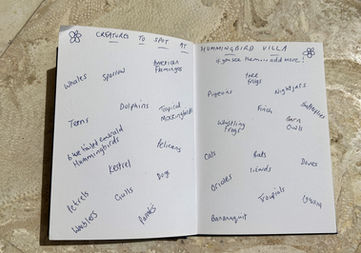 CREATURES TO SPOT AT
Whales
Sparrow
American
Flamingos
Dolphins
Tropical
Mockingbirds
Terns
blue tailed emerald
Hummingbirds
Kestrel
Pelicans
Dog
Petrels
Gulls
Warblers
Parrots
HUMMINGBIRD VILLA
if you see them... add more!
tree
frogs
Pigeons
Nightjars
Butterflies
Finch
Whistling
frogs
Barn
Owls
Cats
Bats
Lizards
Doves
Orioles
Troupials
Bananaquit